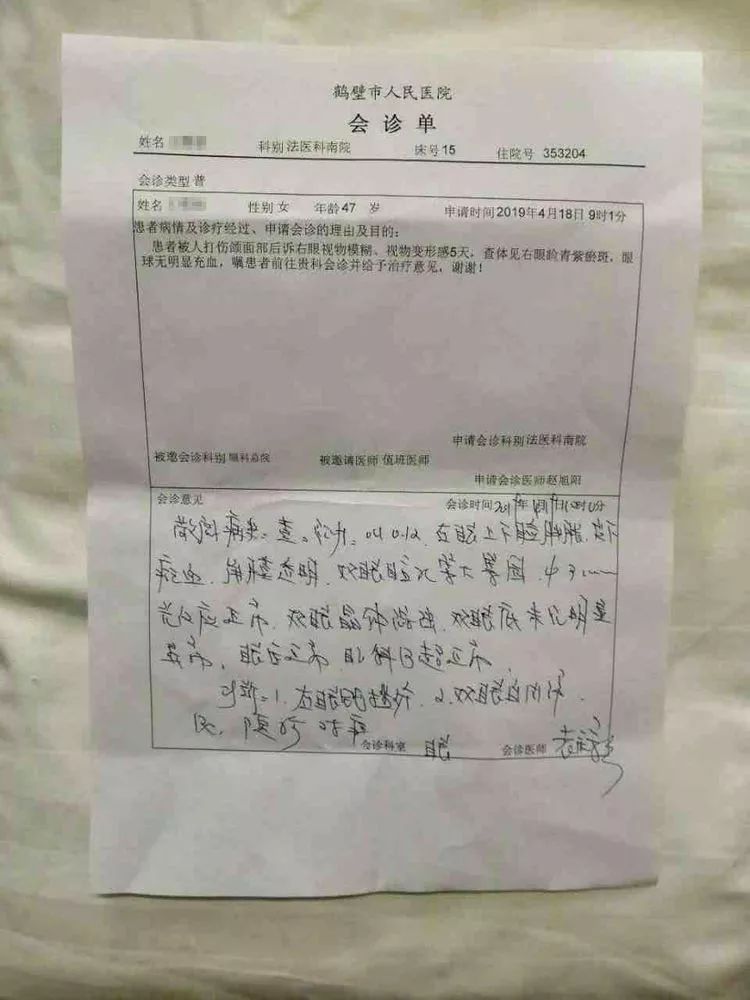 鹤壁市人民医院
会诊单
姓名 科别 法医科南院 床号 15 住院号 353204
会诊类型 普
姓名 性别 女 年龄 47 岁 申请时间 2019年4月18日 9时1分
患者病情及诊疗经过、申请会诊的理由及目的:
患者被人打伤颌面部后诉右眼视物模糊、视物变形感5天，查体见右眼睑青紫瘀斑，眼
球无明显充血，嘱患者前往贵科会诊并给予治疗意见，谢谢！
申请会诊科别 法医科南院
被邀会诊科别 眼科总院 被邀请医师 值班医师
申请会诊医师 赵旭阳
会诊意见 会诊时间
病史 查 眼上下睑肿胀 皮下
瘀血 角膜透明 双眼瞳孔等大等圆
光反应正常 双眼晶体 双眼底未见明显
异常 眼压正常 眼科B超正常
1. 眼 2. 双眼白内障
会诊科室 眼 会诊医师